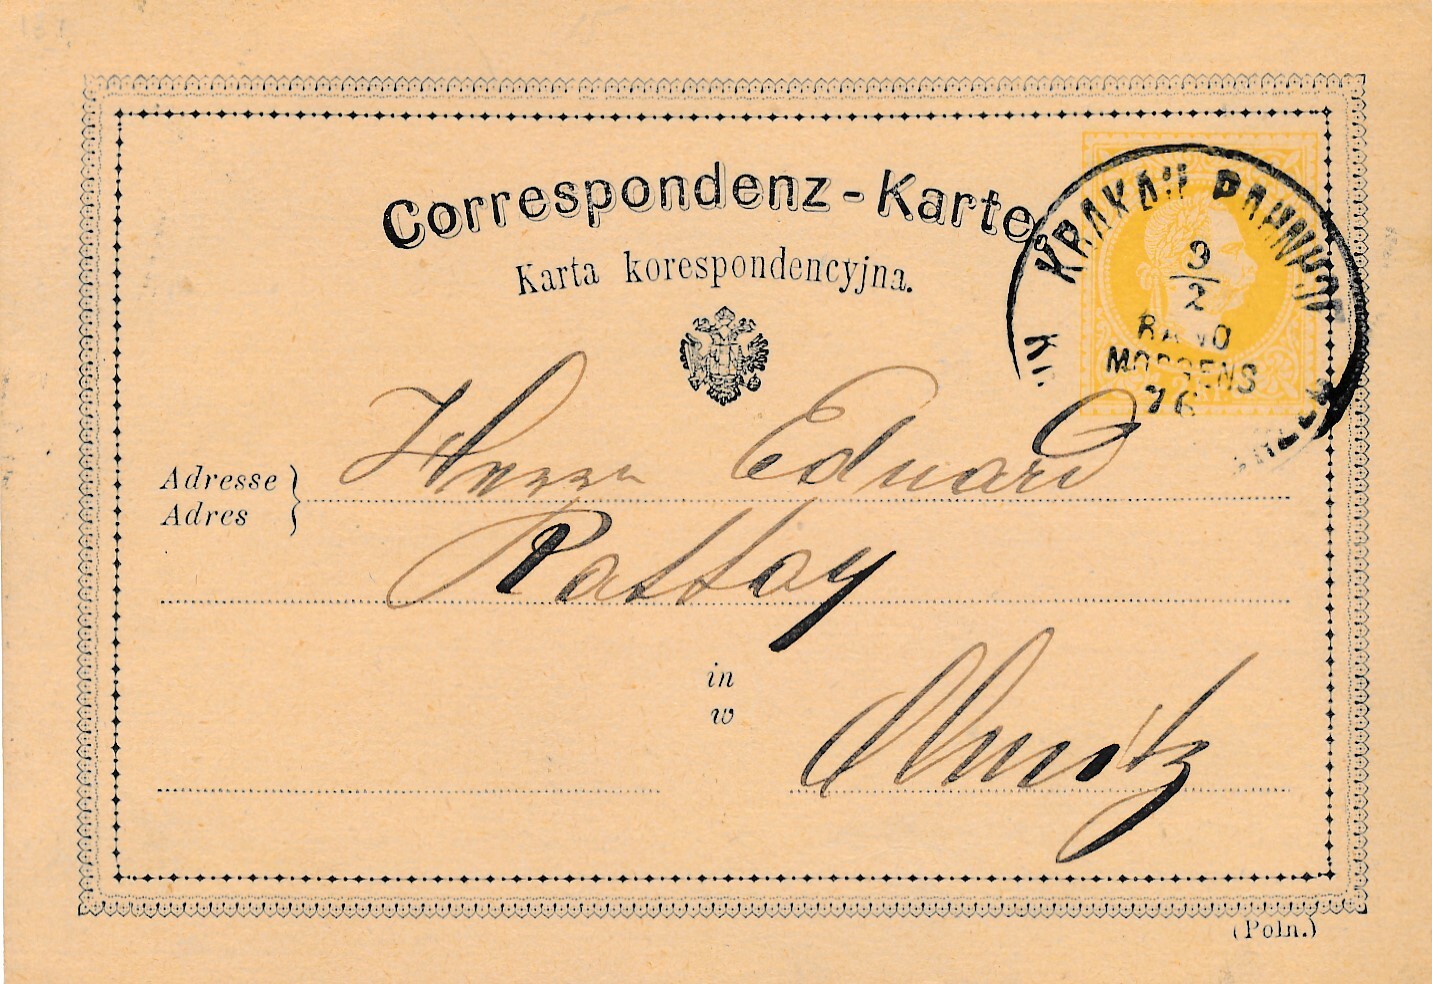 Correspondenz-Karte
Karta korespondencyjna.
KRAKAU BAHNHOF
9/2
RANO
MORGENS
76
Adresse
Adres
Herrn Eduard
Rattay
in
w
Olmütz
(Poln.)